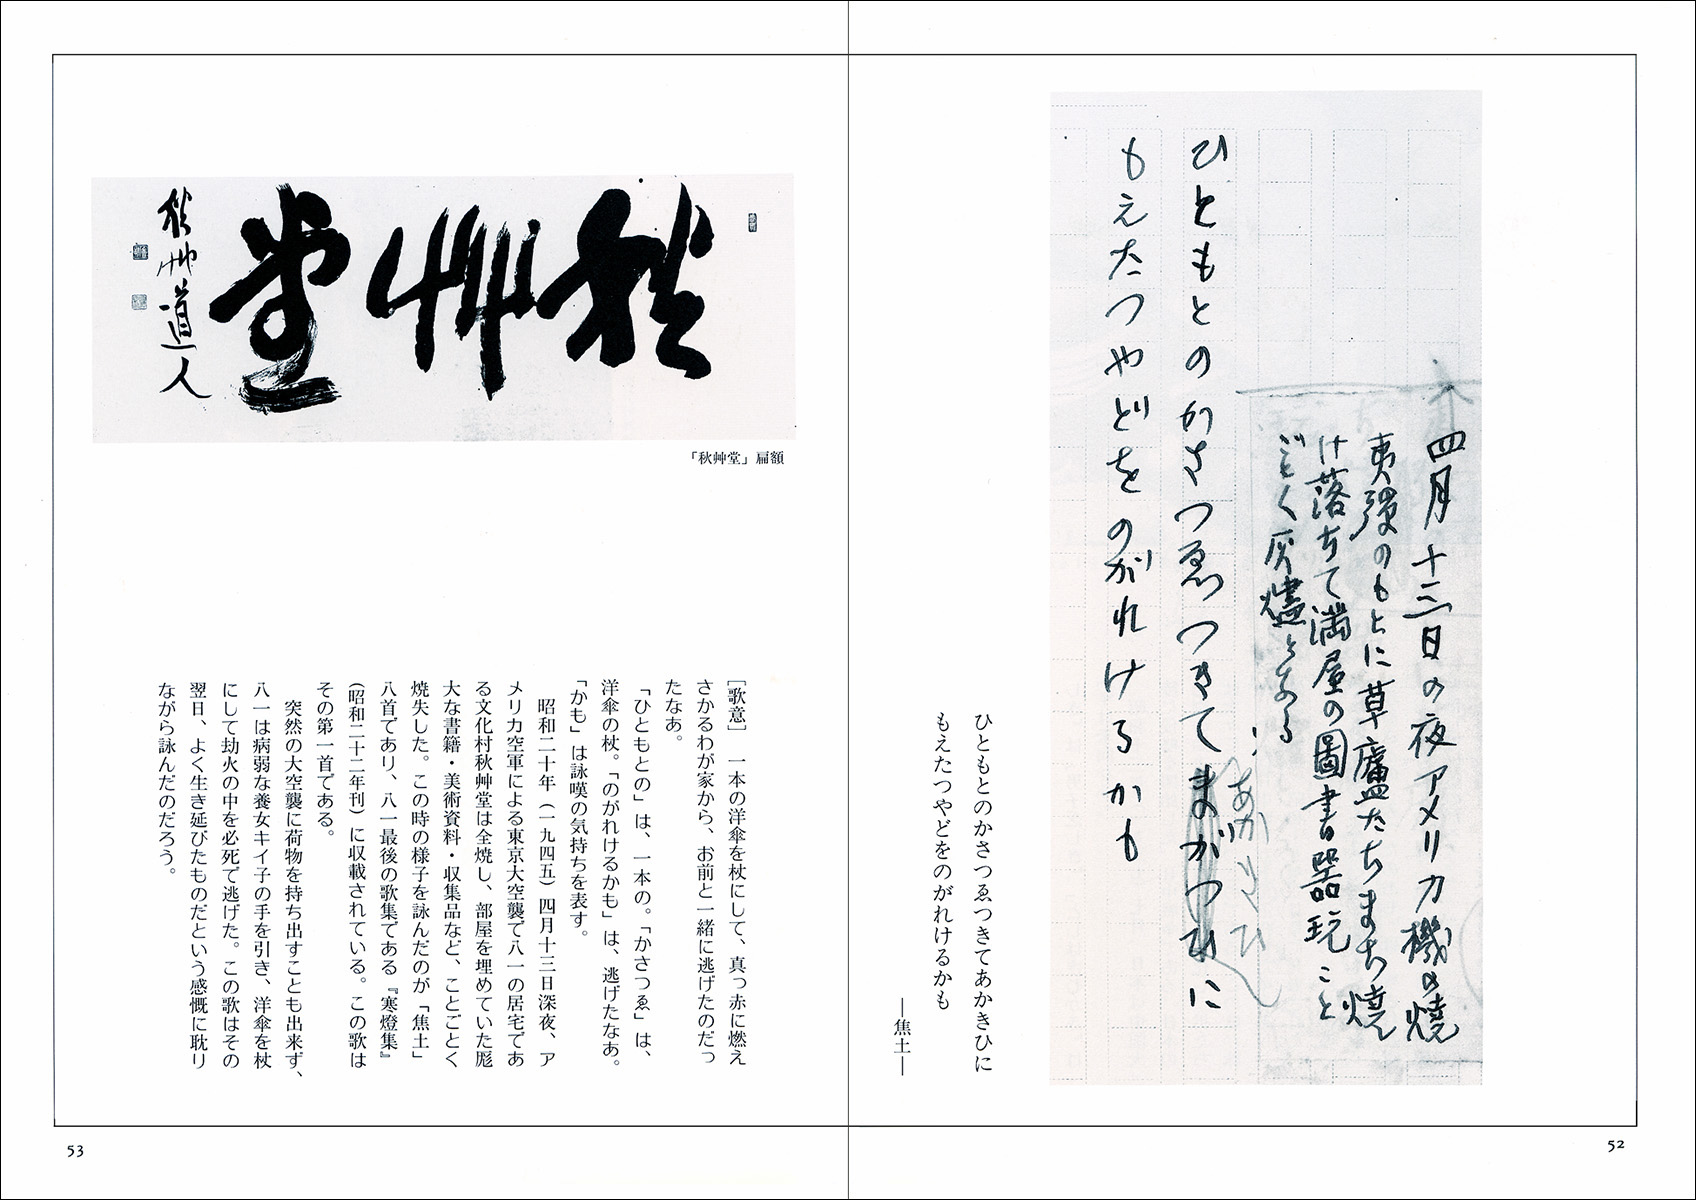 四月十三日の夜アメリカ機の燒
夷彈のもとに草廬たちまち燒
け落ちて満屋の圖書器玩こと
ごとく灰燼となる
ひともとのかさつゑつきてまがつひに
あかきひ
もえたつやどをのがれけるかも
ひともとのかさつゑつきてあかきひに
もえたつやどをのがれけるかも
―焦土―
52
秋艸堂
秋艸道人
「秋艸堂」扁額
[歌意]　一本の洋傘を杖にして、真っ赤に燃え
さかるわが家から、お前と一緒に逃げたのだっ
たなあ。
「ひともとの」は、一本の。「かさつゑ」は、
洋傘の杖。「のがれけるかも」は、逃げたなあ。
「かも」は詠嘆の気持ちを表す。
昭和二十年（一九四五）四月十三日深夜、ア
メリカ空軍による東京大空襲で八一の居宅であ
る文化村秋艸堂は全焼し、部屋を埋めていた厖
大な書籍・美術資料・収集品など、ことごとく
焼失した。この時の様子を詠んだのが「焦土」
八首であり、八一最後の歌集である『寒燈集』
（昭和二十二年刊）に収載されている。この歌は
その第一首である。
突然の大空襲に荷物を持ち出すことも出来ず、
八一は病弱な養女キイ子の手を引き、洋傘を杖
にして劫火の中を必死で逃げた。この歌はその
翌日、よく生き延びたものだという感慨に耽り
ながら詠んだのだろう。
53